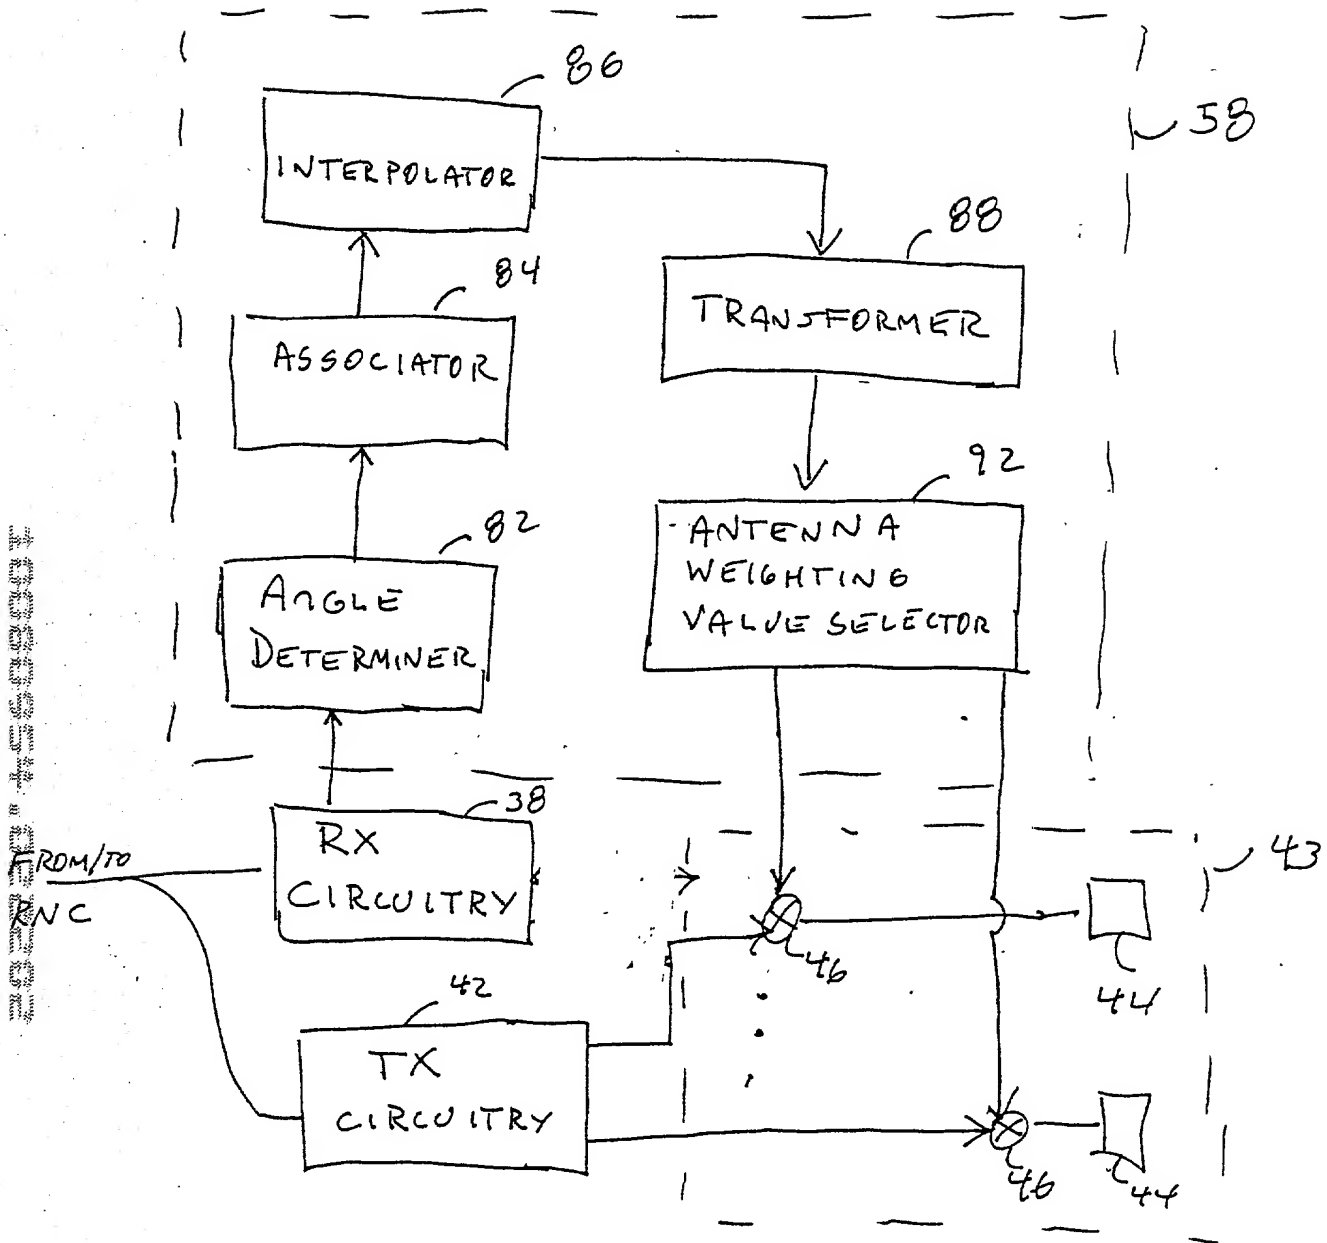 86
58
INTERPOLATOR
88
84
TRANSFORMER
ASSOCIATOR
92
ANTENNA
WEIGHTING
VALUE SELECTOR
82
ANGLE
DETERMINER
38
RX
CIRCUITRY
FROM/TO
RNC
43
46
44
42
TX
CIRCUITRY
46
44